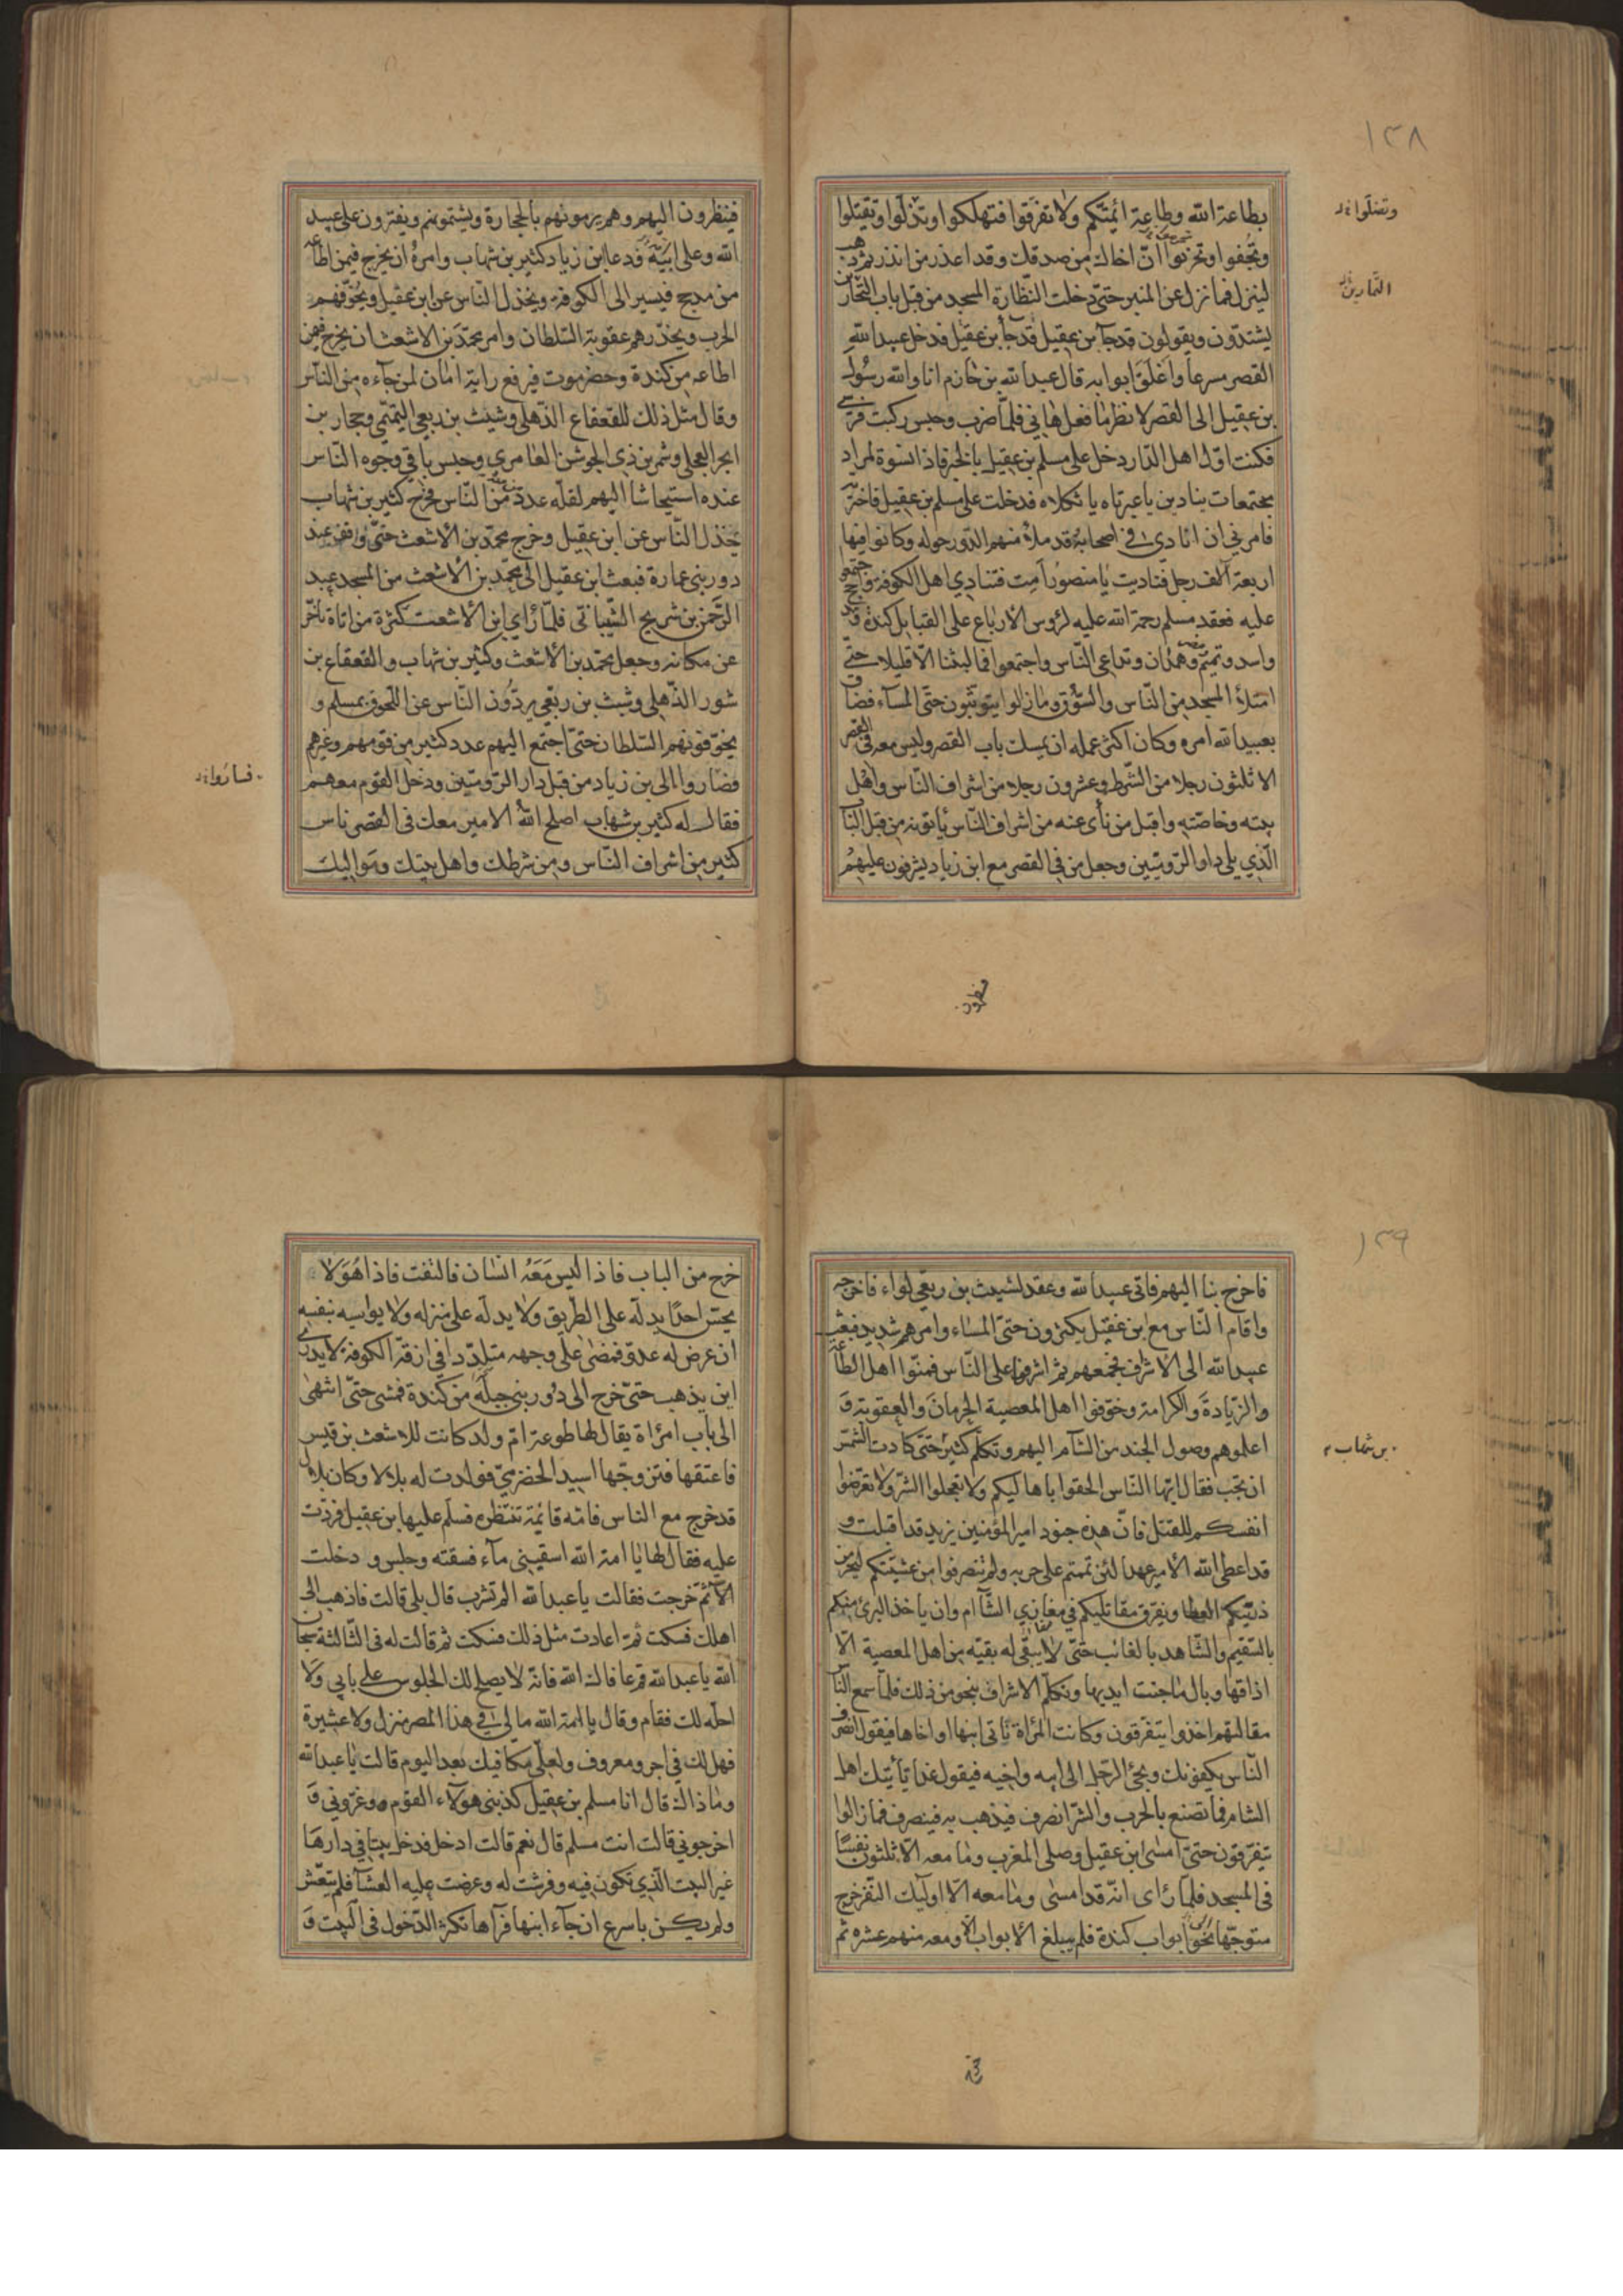 ١٣٨
بطاعة الله وطاعة ائمتكم ولا تفرقوا فتهلكوا وتذلّوا وتقتلوا
وتجفوا وتحربوا انّ اخاك من صدقك وقد اعذر من انذر ثم ذهب
لينزل فما نزل عن المنبر حتّى دخلت النّظارة المسجد من قبل باب التّجارين
يشتدّون ويقولون قد جآء بن عقيل قد جآء بن عقيل فدخل عبيد الله
القصر مسرعاً واغلق ابوابه قال عبد الله بن خازم انا والله رسول
بن عقيل الى القصر لانظر ما فعل هاني فلمّا ضرب وحبس ركبت فرسي
فكنت اوّل اهل الدّار دخل على مسلم بن عقيل بالخبر فاذا نسوة لمراد
مجتمعات ينادين يا عبرتاه يا ثكلاه فدخلت على مسلم بن عقيل فاخبرته
فامرني ان انادي في اصحابه وقد ملأ منهم الدّور حوله وكانوا فيها
اربعة آلف رجل فناديت يا منصور امت فتنادي اهل الكوفة واجتمعوا
عليه فعقد مسلم رحمة الله عليه لرؤس الارباع على القبايل كندة و
واسد وتميم وهمدان وتداعى النّاس واجتمعوا فما لبثنا الّا قليلا حتّى
امتلأ المسجد من النّاس والسّوق وما زالوا يتوثّبون حتّى المسآء فضاق
بعبيد الله امره وكان اكثر عمله ان يمسك باب القصر وليس معه في القصر
الا ثلثون رجلا من الشّرط وعشرون رجلا من اشراف النّاس واهل
بيته وخاصّته واقبل من نأى عنه من اشراف النّاس يأتونه من قبل الباب
الّذي يلي دار الرّوميّين وجعل من في القصر مع ابن زياد يشرفون عليهم
وتضلّوا
التّمارين
فينظرون
فينظرون اليهم وهم يرمونهم بالحجارة ويشتمونهم ويفترون على عبيد
الله وعلى ابيه فدعا ابن زياد كثير بن شهاب وامره ان يخرج فيمن اطاعه
من مذحج فيسير الى الكوفة ويخذل النّاس عن ابن عقيل ويخوّفهم
الحرب ويحذّرهم عقوبة السّلطان وامر محمّد بن الاشعث ان يخرج فيمن
اطاعه من كندة وحضرموت فيرفع راية امان لمن جآءه من النّاس
وقال مثل ذلك للقعقاع الذّهلي وشبث بن ربعي التميمي وحجار بن
ابجر العجلي وشمر بن ذي الجوشن العامري وحبس باقي وجوه النّاس
عنده استيحاشا اليهم لقلّة عدد من معه من النّاس فخرج كثير بن شهاب
يخذل النّاس عن ابن عقيل وخرج محمّد بن الاشعث حتّى وقف عند
دور بني عمارة فبعث ابن عقيل الى محمّد بن الاشعث من المسجد عبد
الرّحمن بن شريح الشّيباني فلمّا رأى ابن الاشعث كثرة من اتاه تأخّر
عن مكانه وجعل محمّد بن الاشعث وكثير بن شهاب والقعقاع بن
شور الذّهلي وشبث بن ربعي يردّون النّاس عن اللّحوق بمسلم و
يخوّفونهم السّلطان حتّى اجتمع اليهم عدد كثير من قومهم وغيرهم
فصاروا الى بن زياد من قبل دار الرّوميّين ودخل القوم معهم
فقال له كثير بن شهاب اصلح الله الامير معك في القصر ناس
كثير من اشراف النّاس ومن شرطك واهل بيتك ومواليك
فساروا
١٣٩
فاخرج بنا اليهم فابى عبيد الله وعقد لشبث بن ربعي لواء فاخرجه
واقام النّاس مع ابن عقيل يكثرون حتّى المساء وامرهم شديد فبعث
عبيد الله الى الاشراف فجمعهم ثم اشرفوا على النّاس فمنّوا اهل الطّاعة
والزّيادة والكرامة وخوّفوا اهل المعصية الحرمان والعقوبة و
اعلموهم وصول الجند من الشآم اليهم وتكلّم كثير حتّى كادت الشّمس
ان تجب فقال ايّها النّاس الحقوا باهاليكم ولا تعجلوا الشّر ولا تعرّضوا
انفسكم للقتل فانّ هذه جنود امير المؤمنين يزيد قد اقبلت و
قد اعطى الله الامير عهدا لئن تممتم على حربه ولم تنصرفوا من عشيّتكم ليحرمن
ذرّيتكم العطا ويفرق مقاتليكم في مغازي الشّآم وان يأخذ البرئ منكم
بالسّقيم والشّاهد بالغائب حتّى لا يبقى له بقيّة من اهل المعصية الّا
اذاقها وبال ما جنت ايديها وتكلّم الاشراف بنحو من ذلك فلمّا سمع النّاس
مقالتهم اخذوا يتفرّقون وكانت المرأة تأتي ابنها او اخاها فيقول انصرف
النّاس يكفونك ويجئ الرّجل الى ابنه واخيه فيقول غدا يأتيك اهل
الشام فما تصنع بالحرب والشّر انصرف فيذهب به فينصرف فما زالوا
يتفرّقون حتّى امسى ابن عقيل وصلى المغرب وما معه الّا ثلثون نفسًا
في المسجد فلمّا رأى انّه قد امسى وما معه الّا اوليك النّفر خرج
متوجّها نحو ابواب كندة فلم يبلغ الابواب الّا ومعه منهم عشرة ثم
بن شهاب
خرج
خرج من الباب فاذا ليس معه انسان فالتفت فاذا هو لا
يحسّ احدًا يدلّه على الطّريق ولا يدلّه على منزله ولا يواسيه بنفسه
ان عرض له عدوّ فمضى على وجهه متلدّدا في ازقّة الكوفة لا يدري
اين يذهب حتّى خرج الى دور بني جبلة من كندة فمشى حتّى انتهى
الى باب امرأة يقال لها طوعة امّ ولد كانت للاشعث بن قيس
فاعتقها فتزوّجها اسيد الحضرميّ فولدت له بلالا وكان بلال
قد خرج مع الناس فامّه قائمة تنتظره فسلّم عليها بن عقيل فردّت
عليه فقال لها يا امة الله اسقيني مآء فسقته وجلس و دخلت
ثمّ خرجت فقالت يا عبد الله الم تشرب قال بلى قالت فاذهب الى
اهلك فسكت ثمّ اعادت مثل ذلك فسكت ثم قالت له في الثّالثة سبحان
الله يا عبد الله قم عافاك الله فانّه لا يصلح لك الجلوس على بابي ولا
احلّه لك فقام وقال يا امة الله مالي في هذا المصر منزل ولا عشيرة
فهل لك في اجر ومعروف ولعلّي مكافيك بعد اليوم قالت يا عبد الله
وما ذاك قال انا مسلم بن عقيل كذبني هؤلآء القوم وغرّوني و
اخرجوني قالت انت مسلم قال نعم قالت ادخل فدخل بيتا في دارها
غير البيت الّذي تكون فيه وفرشت له وعرضت عليه العشآء فلم يتعّش
ولم يكن باسرع ان جآء ابنها فرآها تكثر الدّخول في البيت و